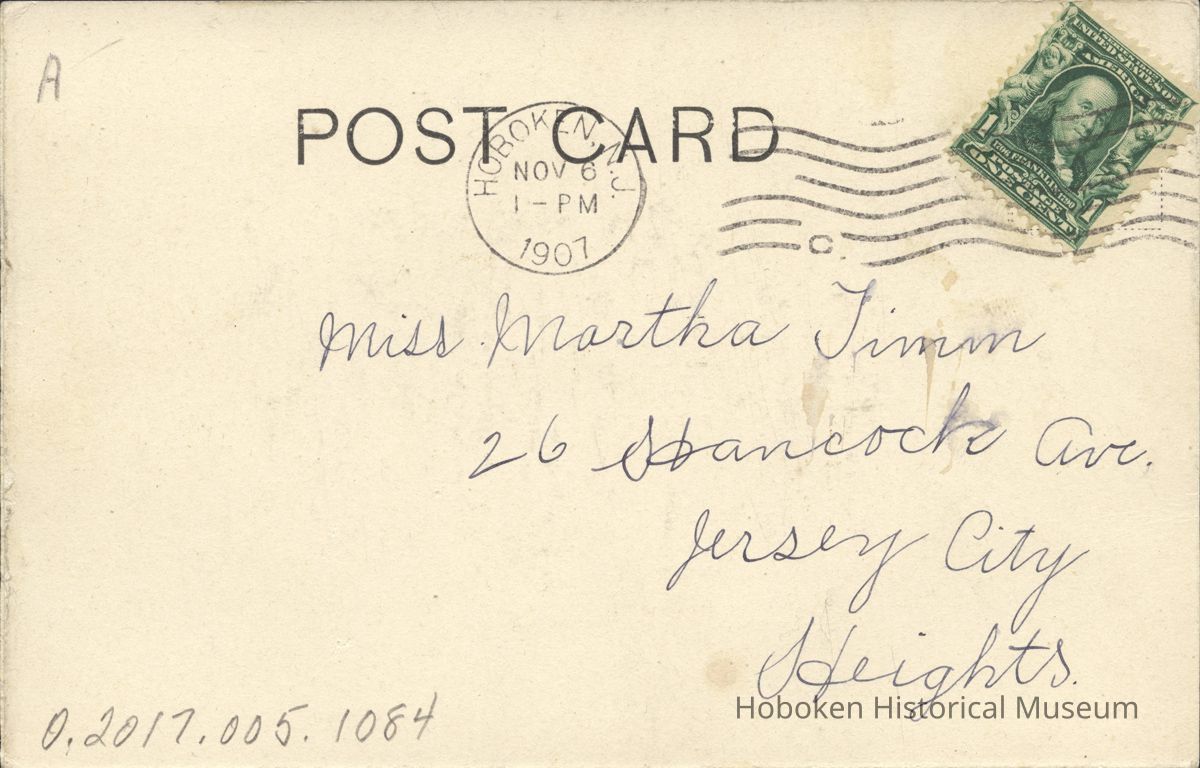 A
POST CARD
HOBOKEN, N.J.
NOV 6
1-PM
1907
C.
UNITED STATES OF
AMERICA
1 1706 FRANKLIN 1790 1
POSTAGE
ONE CENT
Miss Martha Timm
26 Hancock Ave.
Jersey City
Heights.
Hoboken Historical Museum
0.2017.005.1084